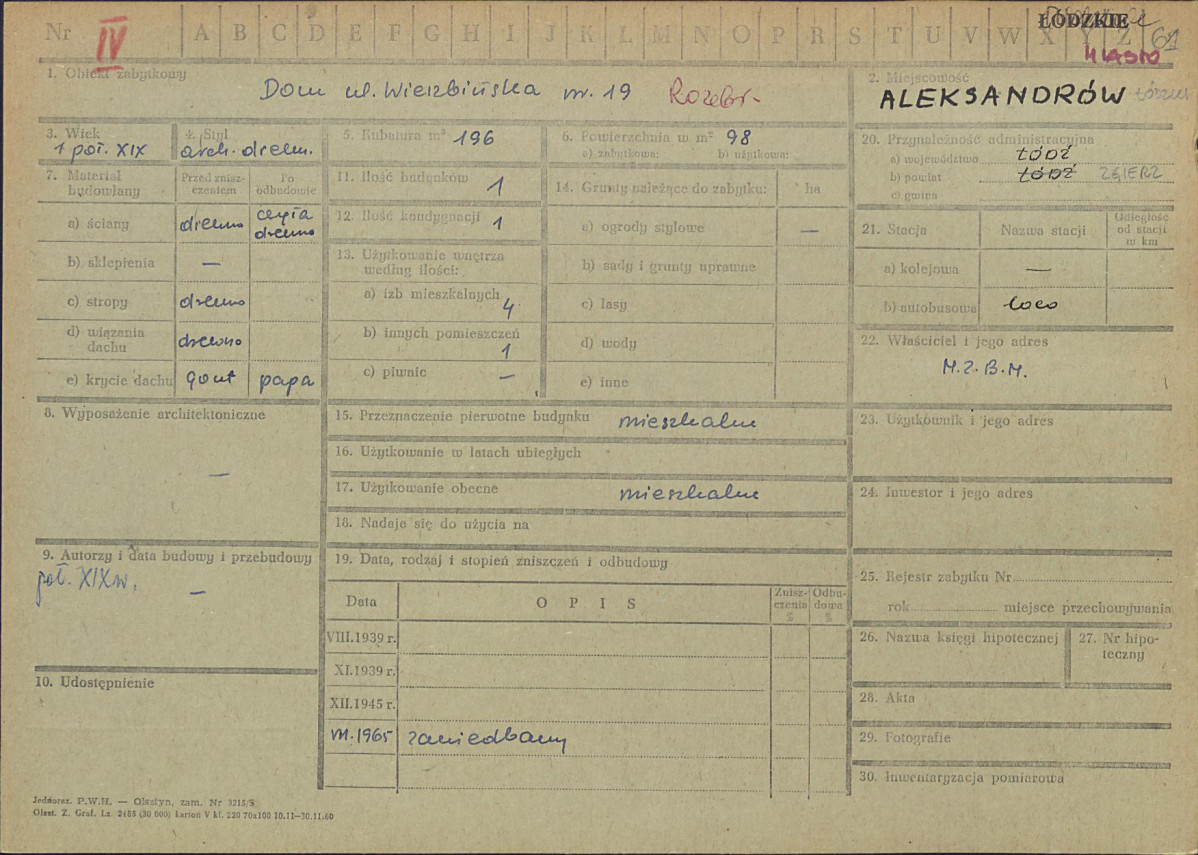 Nr IV A B C D E F G H I J K L M N O P R S T U V W X Y Z 61
ŁÓDZKIE
MIASTO
1. Obiekt zabytkowy
Dom ul. Wierzbińska nr. 19 Rozebr.
2. Miejscowość
ALEKSANDRÓW
3. Wiek
1 poł. XIX
4. Styl
arch. drewn.
5. Kubatura m³ 196
6. Powierzchnia w m² 98
a) zabytkowa: b) użytkowa:
7. Materiał budowlany
Przed zniszczeniem
Po odbudowie
a) ściany drewno cegła drewno
b) sklepienia —
c) stropy drewno
d) wiązania dachu drewno
e) krycie dachu gont papa
8. Wyposażenie architektoniczne
—
9. Autorzy i data budowy i przebudowy
poł. XIX w. —
10. Udostępnienie
11. Ilość budynków 1
12. Ilość kondygnacji 1
13. Użytkowanie wnętrza według ilości:
a) izb mieszkalnych 4
b) innych pomieszczeń 1
c) piwnic —
14. Grunty należące do zabytku: ha
a) ogrody stylowe —
b) sady i grunty uprawne
c) lasy
d) wody
e) inne
15. Przeznaczenie pierwotne budynku mieszkalne
16. Użytkowanie w latach ubiegłych
17. Użytkowanie obecne mieszkalne
18. Nadaje się do użycia na
19. Data, rodzaj i stopień zniszczeń i odbudowy
Data O P I S Zniszczenia % Odbudowa %
VIII.1939 r.
XI.1939 r.
XII.1945 r.
VII.1965 zaniedbany
20. Przynależność administracyjna
a) województwo ŁÓDŹ
b) powiat ŁÓDŹ ZGIERZ
c) gmina
21. Stacja Nazwa stacji Odległość od stacji w km
a) kolejowa —
b) autobusowa loco
22. Właściciel i jego adres
M.Z.B.M.
23. Użytkownik i jego adres
24. Inwestor i jego adres
25. Rejestr zabytku Nr
rok miejsce przechowywania
26. Nazwa księgi hipotecznej
27. Nr hipoteczny
28. Akta
29. Fotografie
30. Inwentaryzacja pomiarowa
Jednoraz. P.W.H. — Olsztyn, zam. Nr 3215/S
Olszt. Z. Graf. Lz. 2488 (30 000) karton V kl. 220 70x100 10.11—30.11.60